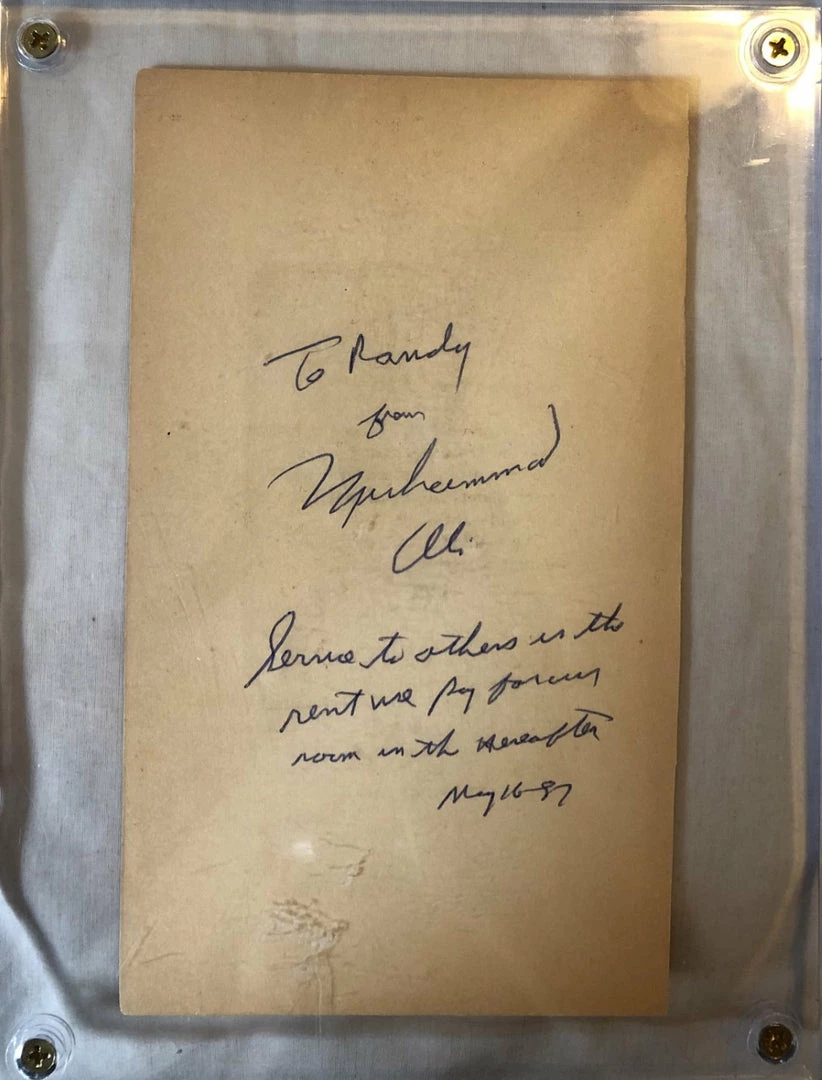 To Randy
from
Muhammad
Ali
Service to others is the
rent we pay for our
room in the Hereafter
May 16-87